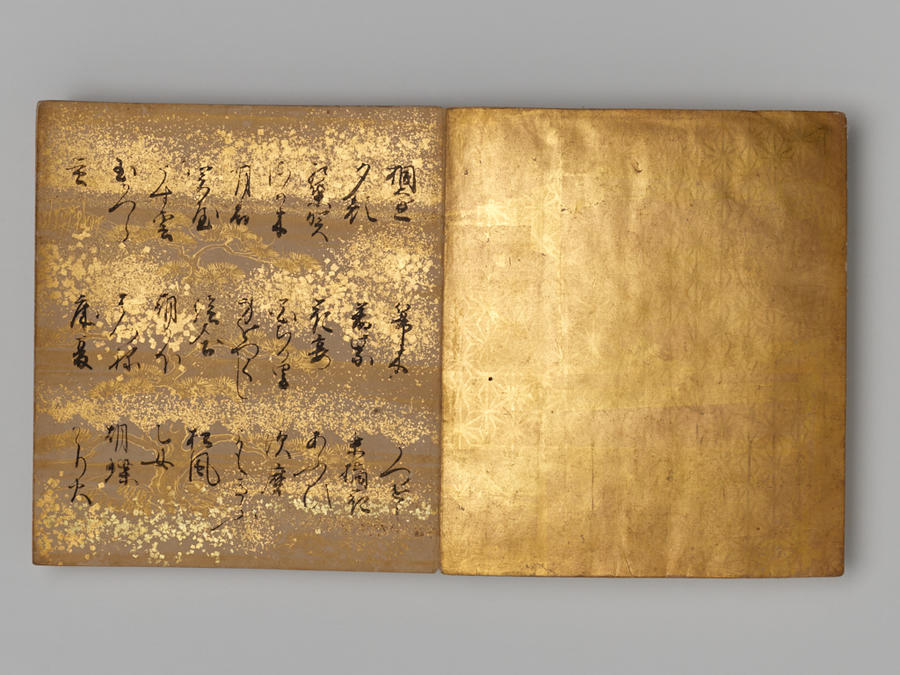 桐壺 箒木
夕顔 若紫 末摘花
紅葉賀 花宴 あふひ
さか木 花ちる里 須磨
明石 みをつくし よもきふ
関屋 絵合 松風
うす雲 朝かほ 乙女
玉かつら はつね 胡蝶
床夏 かゝり火